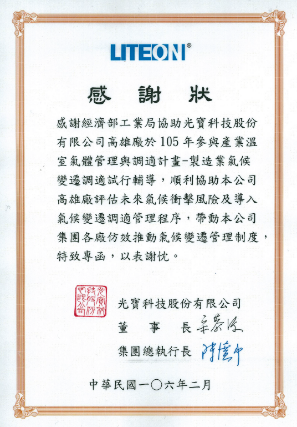 LITEON®
感謝狀
感謝經濟部工業局協助光寶科技股份
有限公司高雄廠於105年參與產業溫
室氣體管理與調適計畫-製造業氣候
變遷調適試行輔導，順利協助本公司
高雄廠評估未來氣候衝擊風險及導入
氣候變遷調適管理程序，帶動本公司
集團各廠仿效推動氣候變遷管理制度，
特致專函，以表謝忱。
光寶科技股份有限公司
董事長
集團總執行長
中華民國一〇六年二月